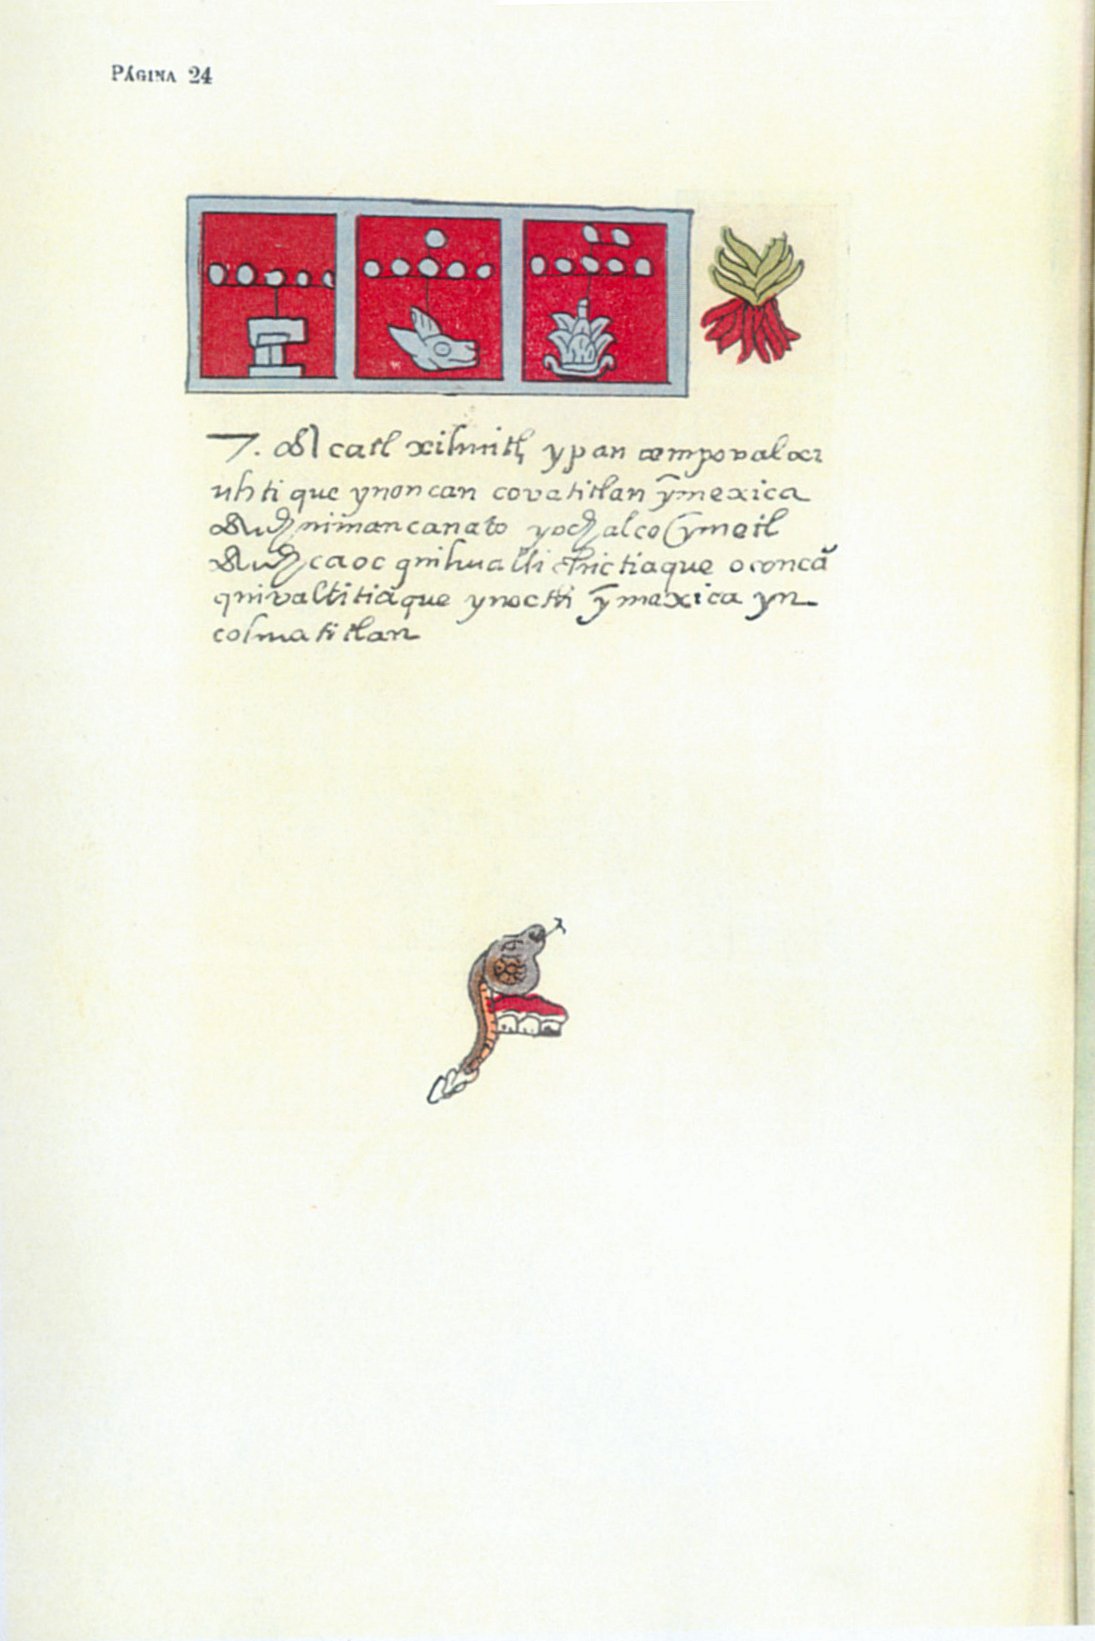 PÁGINA 24
7. Acatl xihuitl ypan cempovalxi
uhtique ynoncan covatitlan ỹmexica
Auh nimancanato yoch alco ỹmetl
Auh caoc quihualli chictiaque oconcã
quivaltitiaque ynochti ỹmexica yn
cohuatitlan